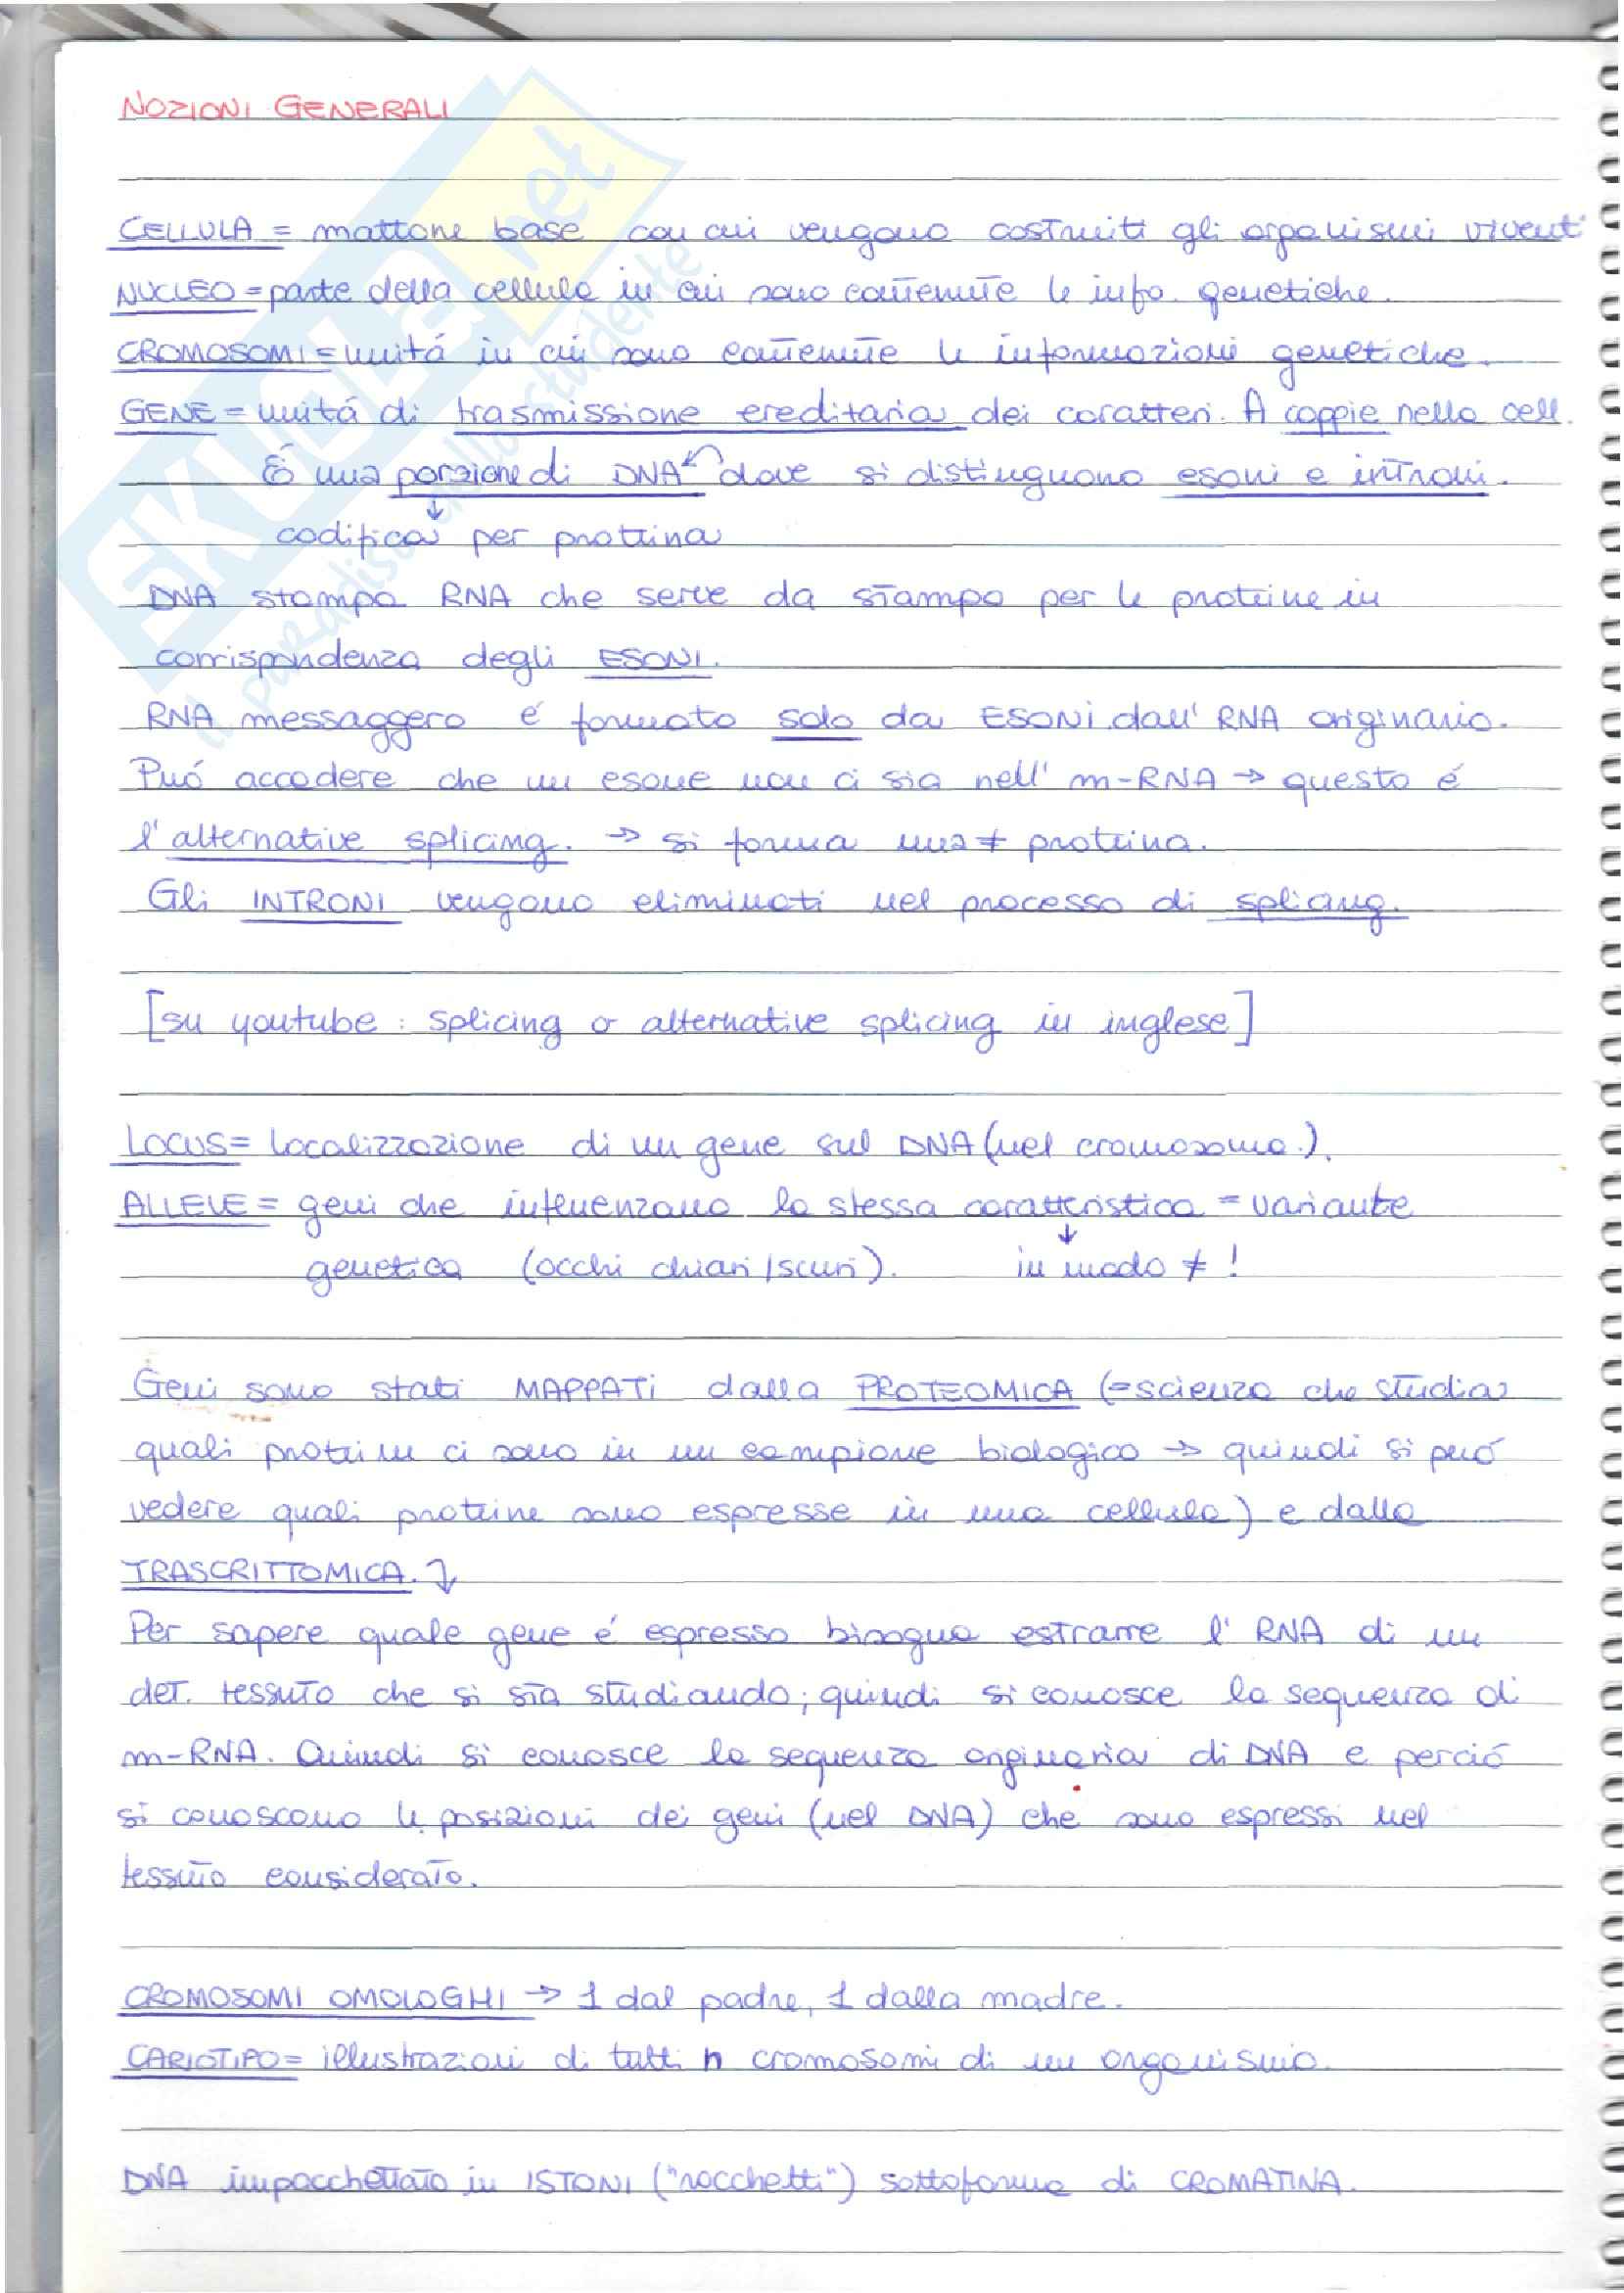 NOZIONI GENERALI
CELLULA = mattone base con cui vengono costruiti gli organismi viventi
NUCLEO = parte della cellula in cui sono contenute le info. genetiche.
CROMOSOMI = unitá in cui sono contenute le informazioni genetiche.
GENE = unitá di trasmissione ereditaria dei caratteri. A coppie nella cell.
É una porzione di DNA dove si distinguono esoni e introni.
↓
codifica per proteina
DNA stampa RNA che serve da stampo per le proteine in
corrispondenza degli ESONI.
RNA messaggero é formato solo da ESONI dall'RNA originario.
Puó accadere che un esone non ci sia nell' m-RNA → questo é
l'alternative splicing. → si forma una ≠ proteina.
Gli INTRONI vengono eliminati nel processo di splicing.
[su youtube : splicing o alternative splicing in inglese]
LOCUS = localizzazione di un gene sul DNA (nel cromosoma.).
ALLELE = geni che influenzano la stessa caratteristica = variante
↓
genetica (occhi chiari/scuri). in modo ≠ !
Geni sono stati MAPPATI dalla PROTEOMICA (=scienza che studia
quali proteine ci sono in un campione biologico → quindi si puó
vedere quali proteine sono espresse in una cellula) e dalla
TRASCRITTOMICA. ↓
Per sapere quale gene é espresso bisogna estrarre l' RNA di un
det. tessuto che si sta studiando; quindi si conosce la sequenza di
m-RNA. Quindi si conosce la sequenza originaria di DNA e perció
si conoscono le posizioni dei geni (nel DNA) che sono espressi nel
tessuto considerato.
CROMOSOMI OMOLOGHI → 1 dal padre, 1 dalla madre.
CARIOTIPO = illustrazioni di tutti n cromosomi di un organismo.
DNA impacchettato in ISTONI ("rocchetti") sottoforma di CROMATINA.
SKUOLA.net
il paradiso dello studente